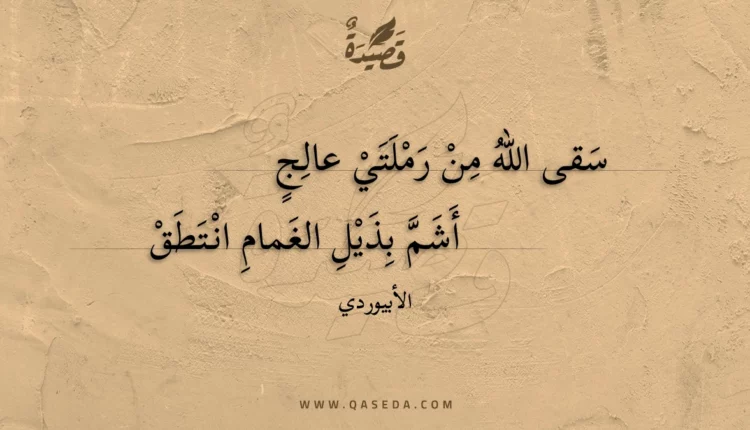 قَصِيدَةٌ
سَقى اللهُ مِنْ رَمْلَتَيْ عالِجٍ
أَشَمَّ بِذَيْلِ الغَمامِ انْتَطَقْ
الأبيوردي
WWW.QASEDA.COM